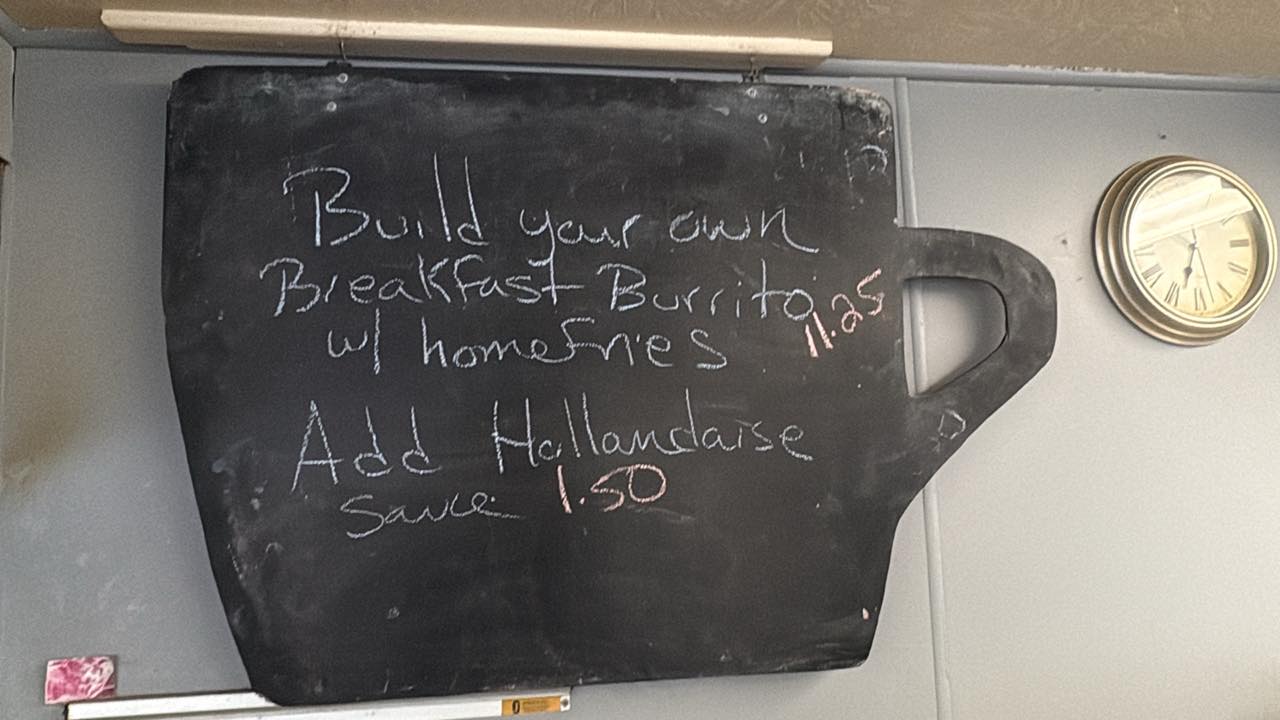 Build your own
Breakfast Burrito 11.25
w/ homefries
Add Hollandaise
sauce 1.50